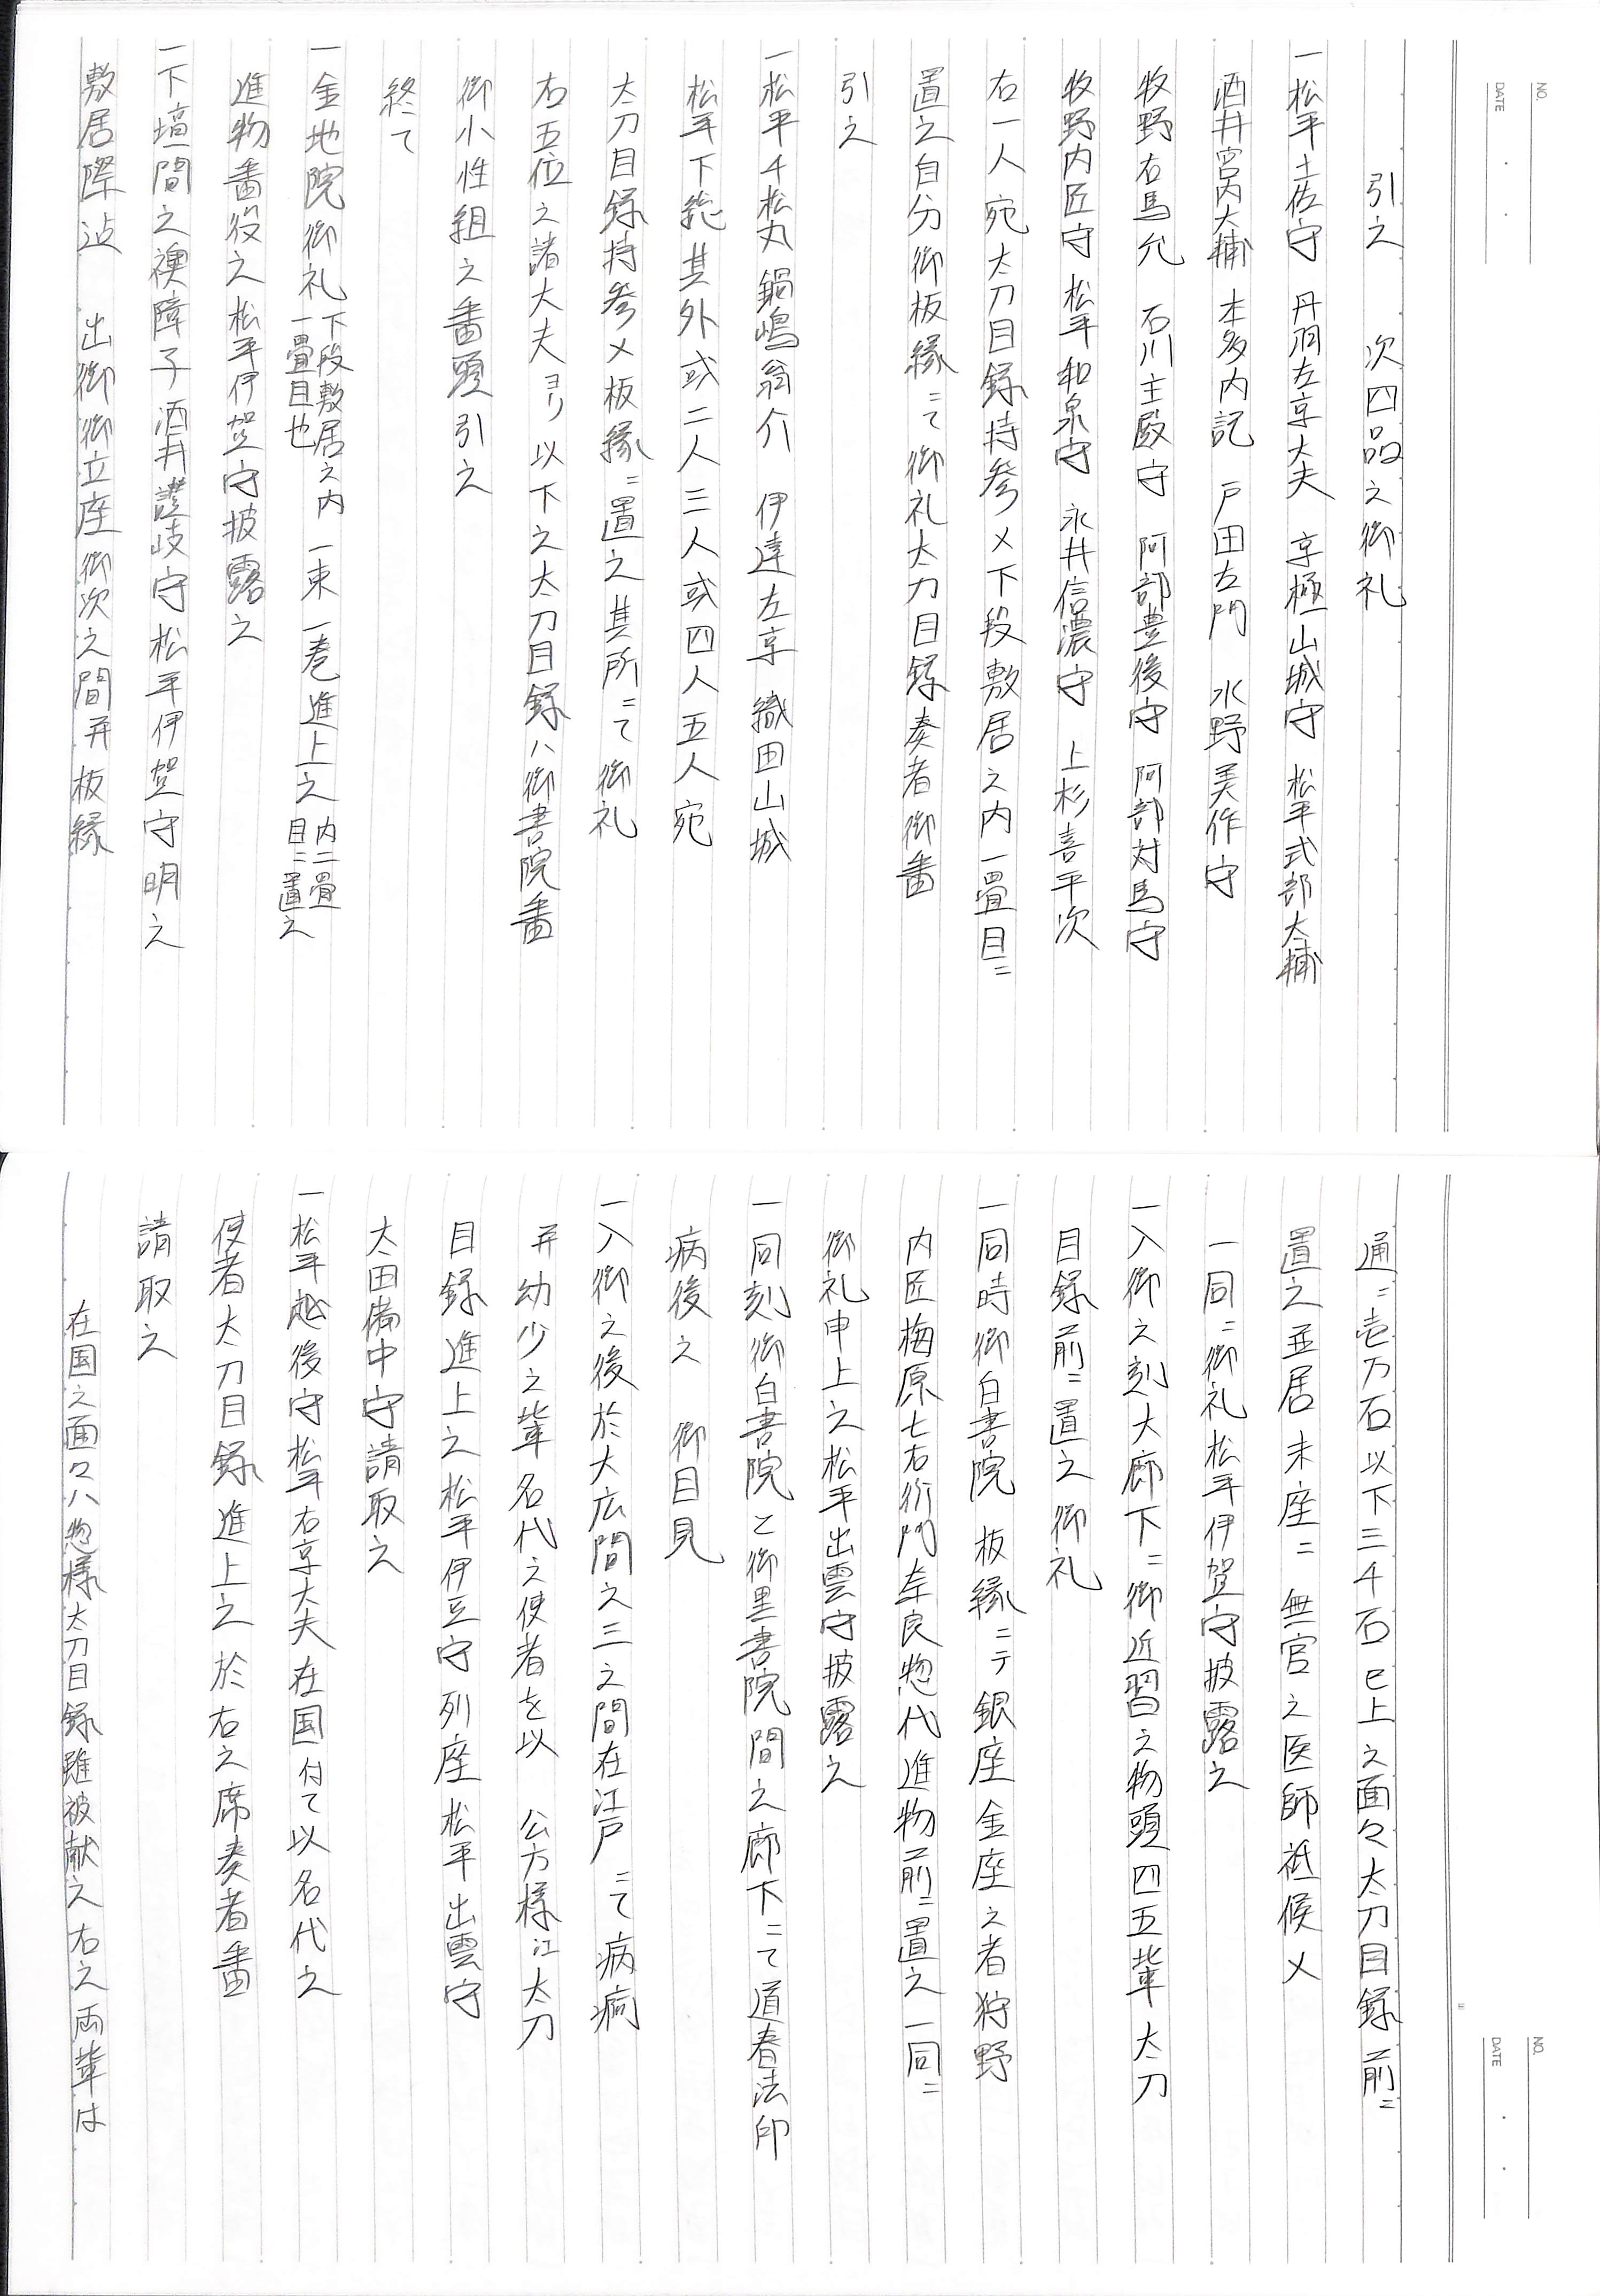 NO.
DATE
引之　次四品之御礼
一松平土佐守　丹羽左京大夫　京極山城守　松平式部大輔
酒井宮内大輔　本多内記　戸田左門　水野美作守
牧野右馬允　石川主殿守　阿部豊後守　阿部対馬守
牧野内匠守　松平和泉守　永井信濃守　上杉喜平次
右一人宛太刀目録持参〆下段敷居之内一畳目ニ
置之自分御板縁ニて御礼太刀目録奏者御番
引之
一松平千松丸　鍋嶋翁介　伊達左京　織田山城
松平下総其外或二人三人或四人五人宛
太刀目録持参〆板縁ニ置之其所ニて御礼
右五位之諸大夫ヨリ以下之太刀目録ハ御書院番
御小性組之番頭引之
終て
一金地院御礼下段敷居之内一畳目也　一束一巻進上之内二畳目ニ置之
進物番役之松平伊賀守披露之
一下壇間之襖障子酒井讃岐守松平伊賀守明之
敷居際迠　出御御立座御次之間并板縁
NO.
DATE
通ニ壱万石以下三千石已上之面々太刀目録前ニ
置之並居末座ニ無官之医師祗候〆
一同ニ御礼松平伊賀守披露之
一入御之刻大廊下ニ御近習之物頭四五輩太刀
目録前ニ置之御礼
一同時御白書院板縁ニテ銀座金座之者狩野
内匠梅原七右衛門奈良惣代進物前ニ置之一同ニ
御礼申上之松平出雲守披露之
一同刻御白書院と御黒書院間之廊下ニて道春法印
病後之　御目見
一入御之後於大広間之三之間在江戸ニて病痾
并幼少之輩名代之使者を以　公方様江太刀
目録進上之松平伊豆守列座松平出雲守
太田備中守請取之
一松平越後守松平右京大夫在国付て以名代之
使者太刀目録進上之於右之席奏者番
請取之
在国之面々ハ惣様太刀目録雖被献之右之両輩は